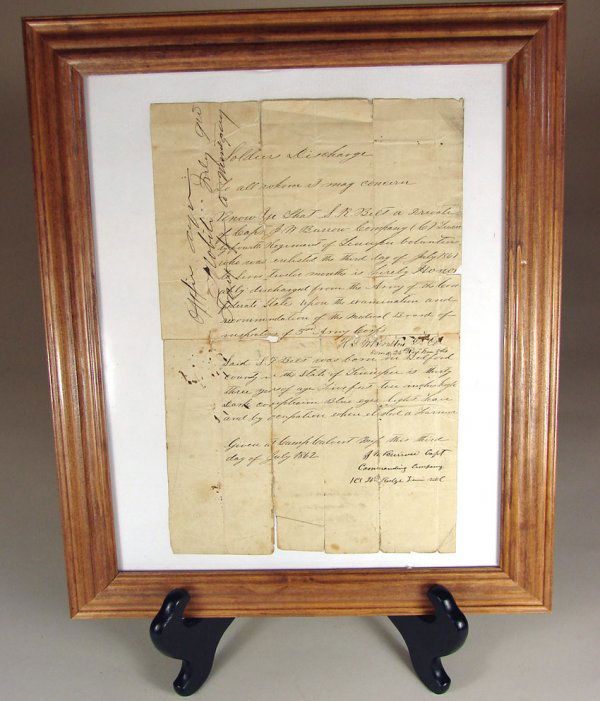 Soldiers Discharge
To all whom it may concern
Know Ye That S. R. Bell a Private
of Capt. J W Burrow Company (C) Twen
ty fourth Regiment of Tennessee Volunteers
who was enlisted the Third day of July 1861
to serve Twelve months is hereby Honor
ably discharged from the Army of the Con
federate States upon the examination and
recommendation of the Medical Board of
inspectors of 3rd Army Corps
Said S. R. Bell was born in Bedford
County in the State of Tennessee is thirty
three years of age five feet inches high
Dark complexion Blue eyes light Hair
and by occupation when enlisted a Farmer
Given at Camp Miss this third
day of July 1862
J W Burrow Capt
Commanding Company
Office day in
Mobile July
to Montgomery